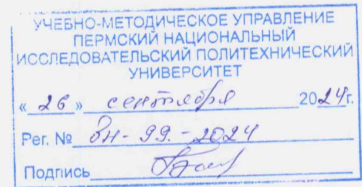 УЧЕБНО-МЕТОДИЧЕСКОЕ УПРАВЛЕНИЕ
ПЕРМСКИЙ НАЦИОНАЛЬНЫЙ
ИССЛЕДОВАТЕЛЬСКИЙ ПОЛИТЕХНИЧЕСКИЙ
УНИВЕРСИТЕТ
« 26 » сентября 2024г.
Рег. № Вн-99.-2024
Подпись